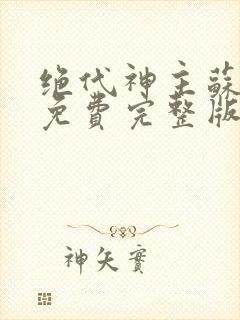 绝代神主蘇
免費完整版
神矢實